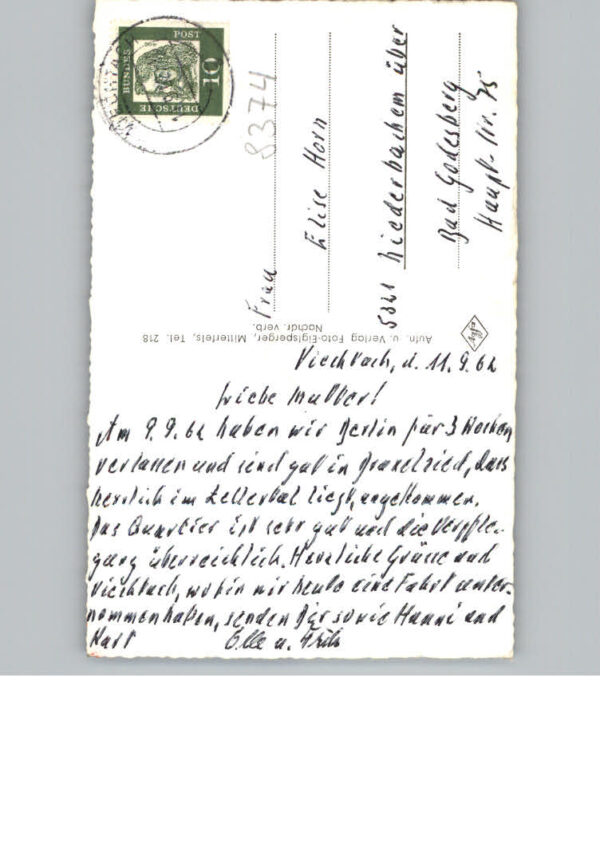 Viechtach, d. 11.9.62
Liebe Mutter!
Am 9.9.62 haben wir Berlin für 3 Wochen
verlassen und sind gut in , das
herrlich im Zellertal liegt, angekommen.
Das Quartier ist sehr gut und die Verpfle-
gung überreichlich. Herzliche Grüsse aus
Viechtach, wohin wir heute eine Fahrt unter-
nommen haben, senden Dir sowie Hanni und
Karl
Frau
Elise Horn
Niederbachem über
Bad Godesberg
Haupt-Str. 75
8374
DEUTSCHE BUNDESPOST
10
VIECHTACH
Aufn. u. Verlag Foto-Eiglsperger, Mitterfels, Tel. 218
Nachdr. verb.
Agfa